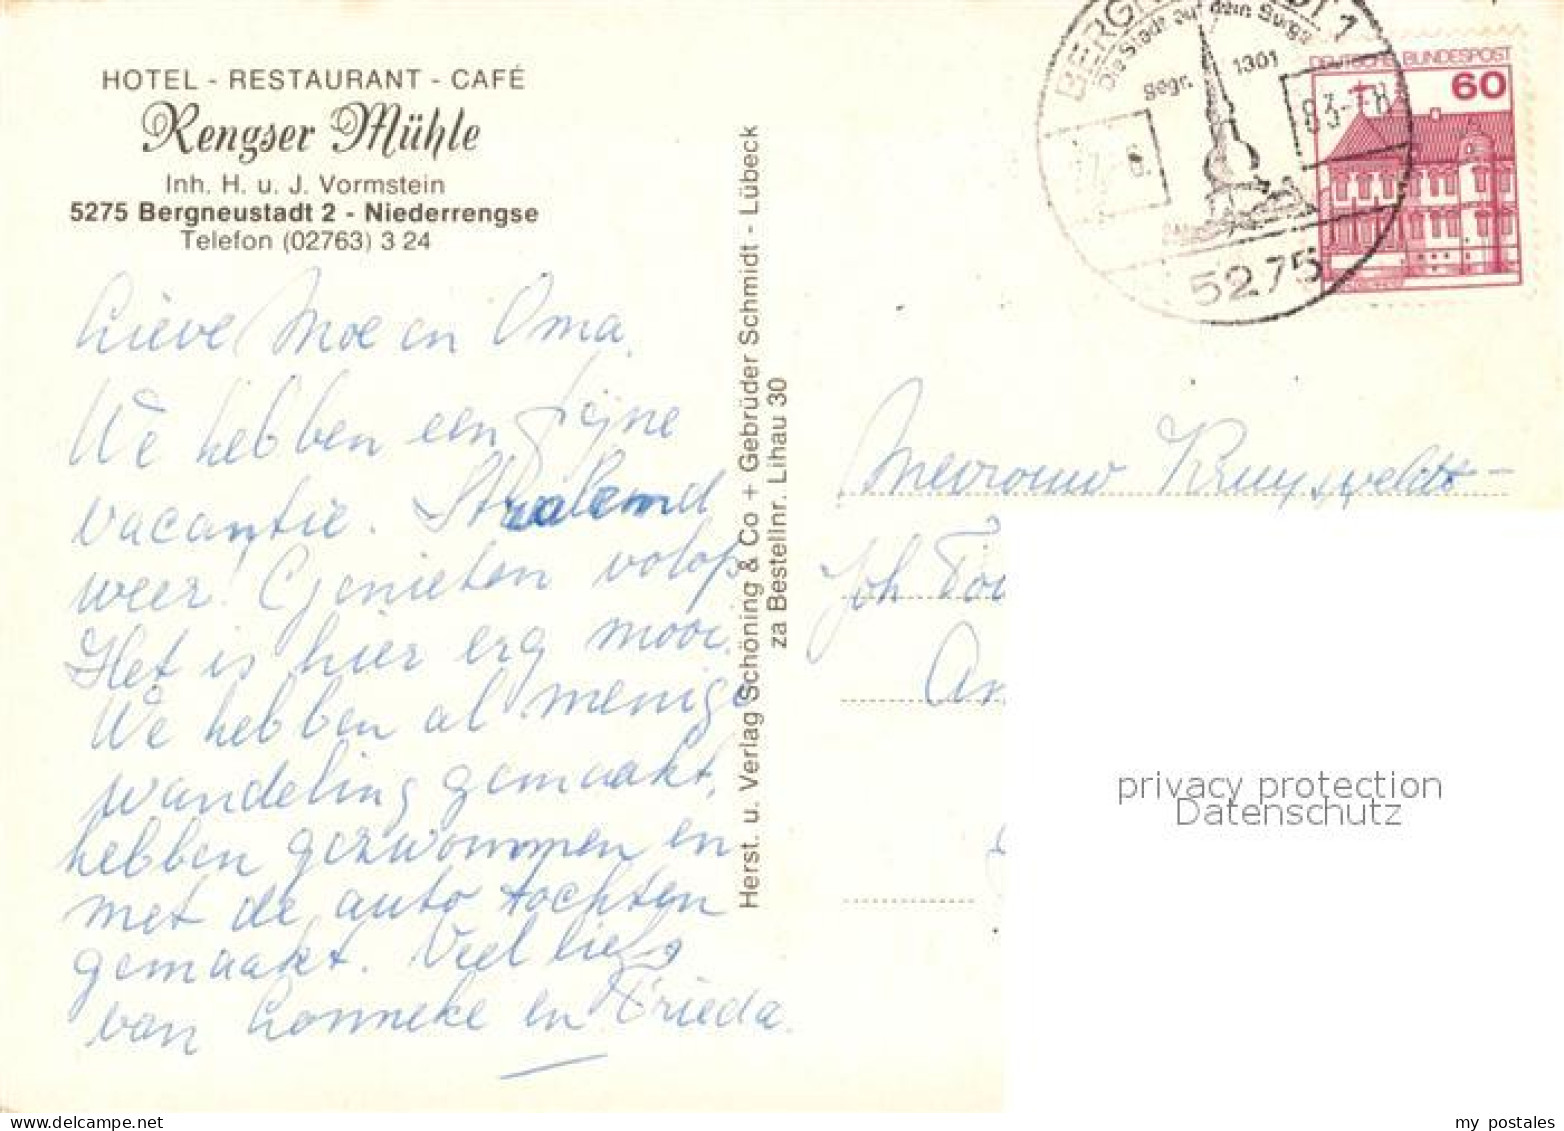 HOTEL - RESTAURANT - CAFÉ
Rengser Mühle
Inh. H. u. J. Vormstein
5275 Bergneustadt 2 - Niederrengse
Telefon (02763) 3 24
Lieve Moe en Oma,
We hebben een fijne
vacantie. Stralend
weer! Genieten volop
Het is hier erg mooi.
We hebben al menige
wandeling gemaakt,
hebben gezwommen en
met de auto tochten
gemaakt. Veel liefs
van Lonneke en Frieda.
Herst. u. Verlag Schöning & Co + Gebrüder Schmidt - Lübeck
za Bestellnr. Lihau 30
Die Stadt auf dem Berge
gegr. 1301
83-18
5275
DEUTSCHE BUNDESPOST
60
Mevrouw
Joh
privacy protection
Datenschutz
my postales